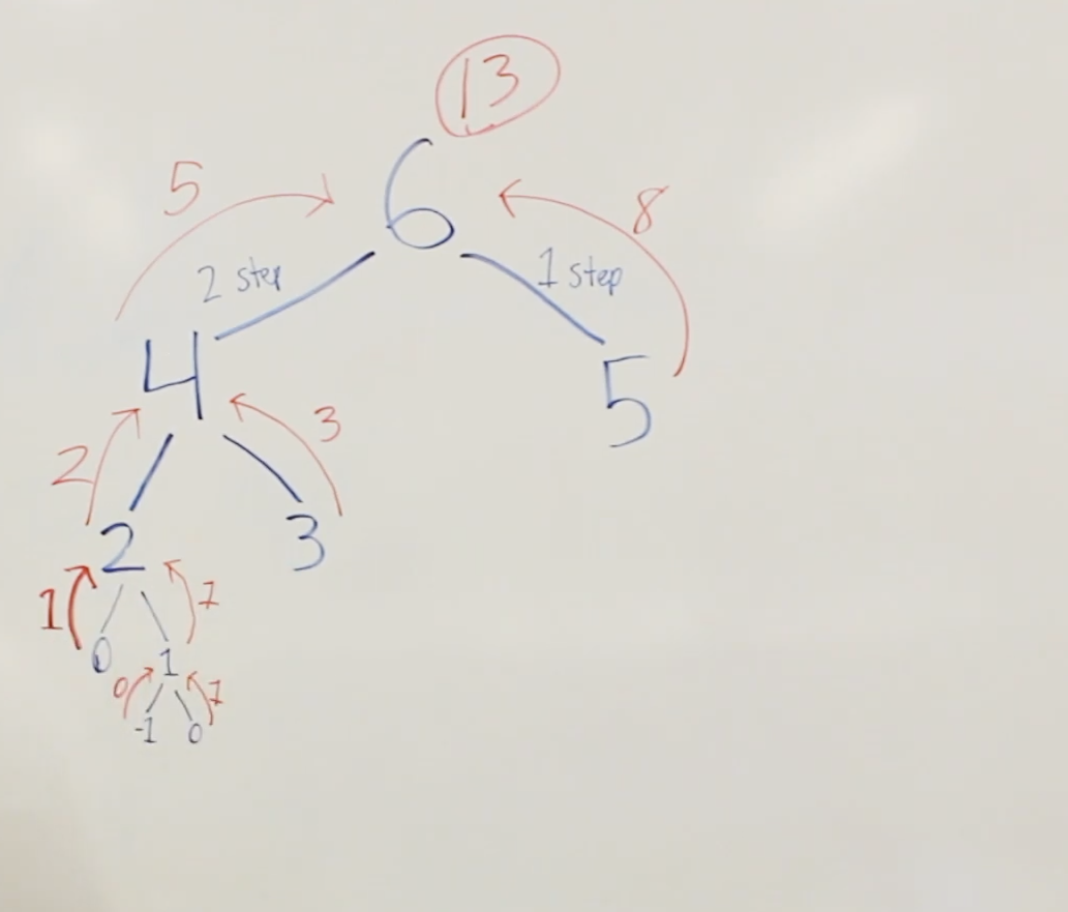 13
5
6
8
2 step
1 step
4
5
2
3
2
3
1
1
0
1
0
1
-1
0